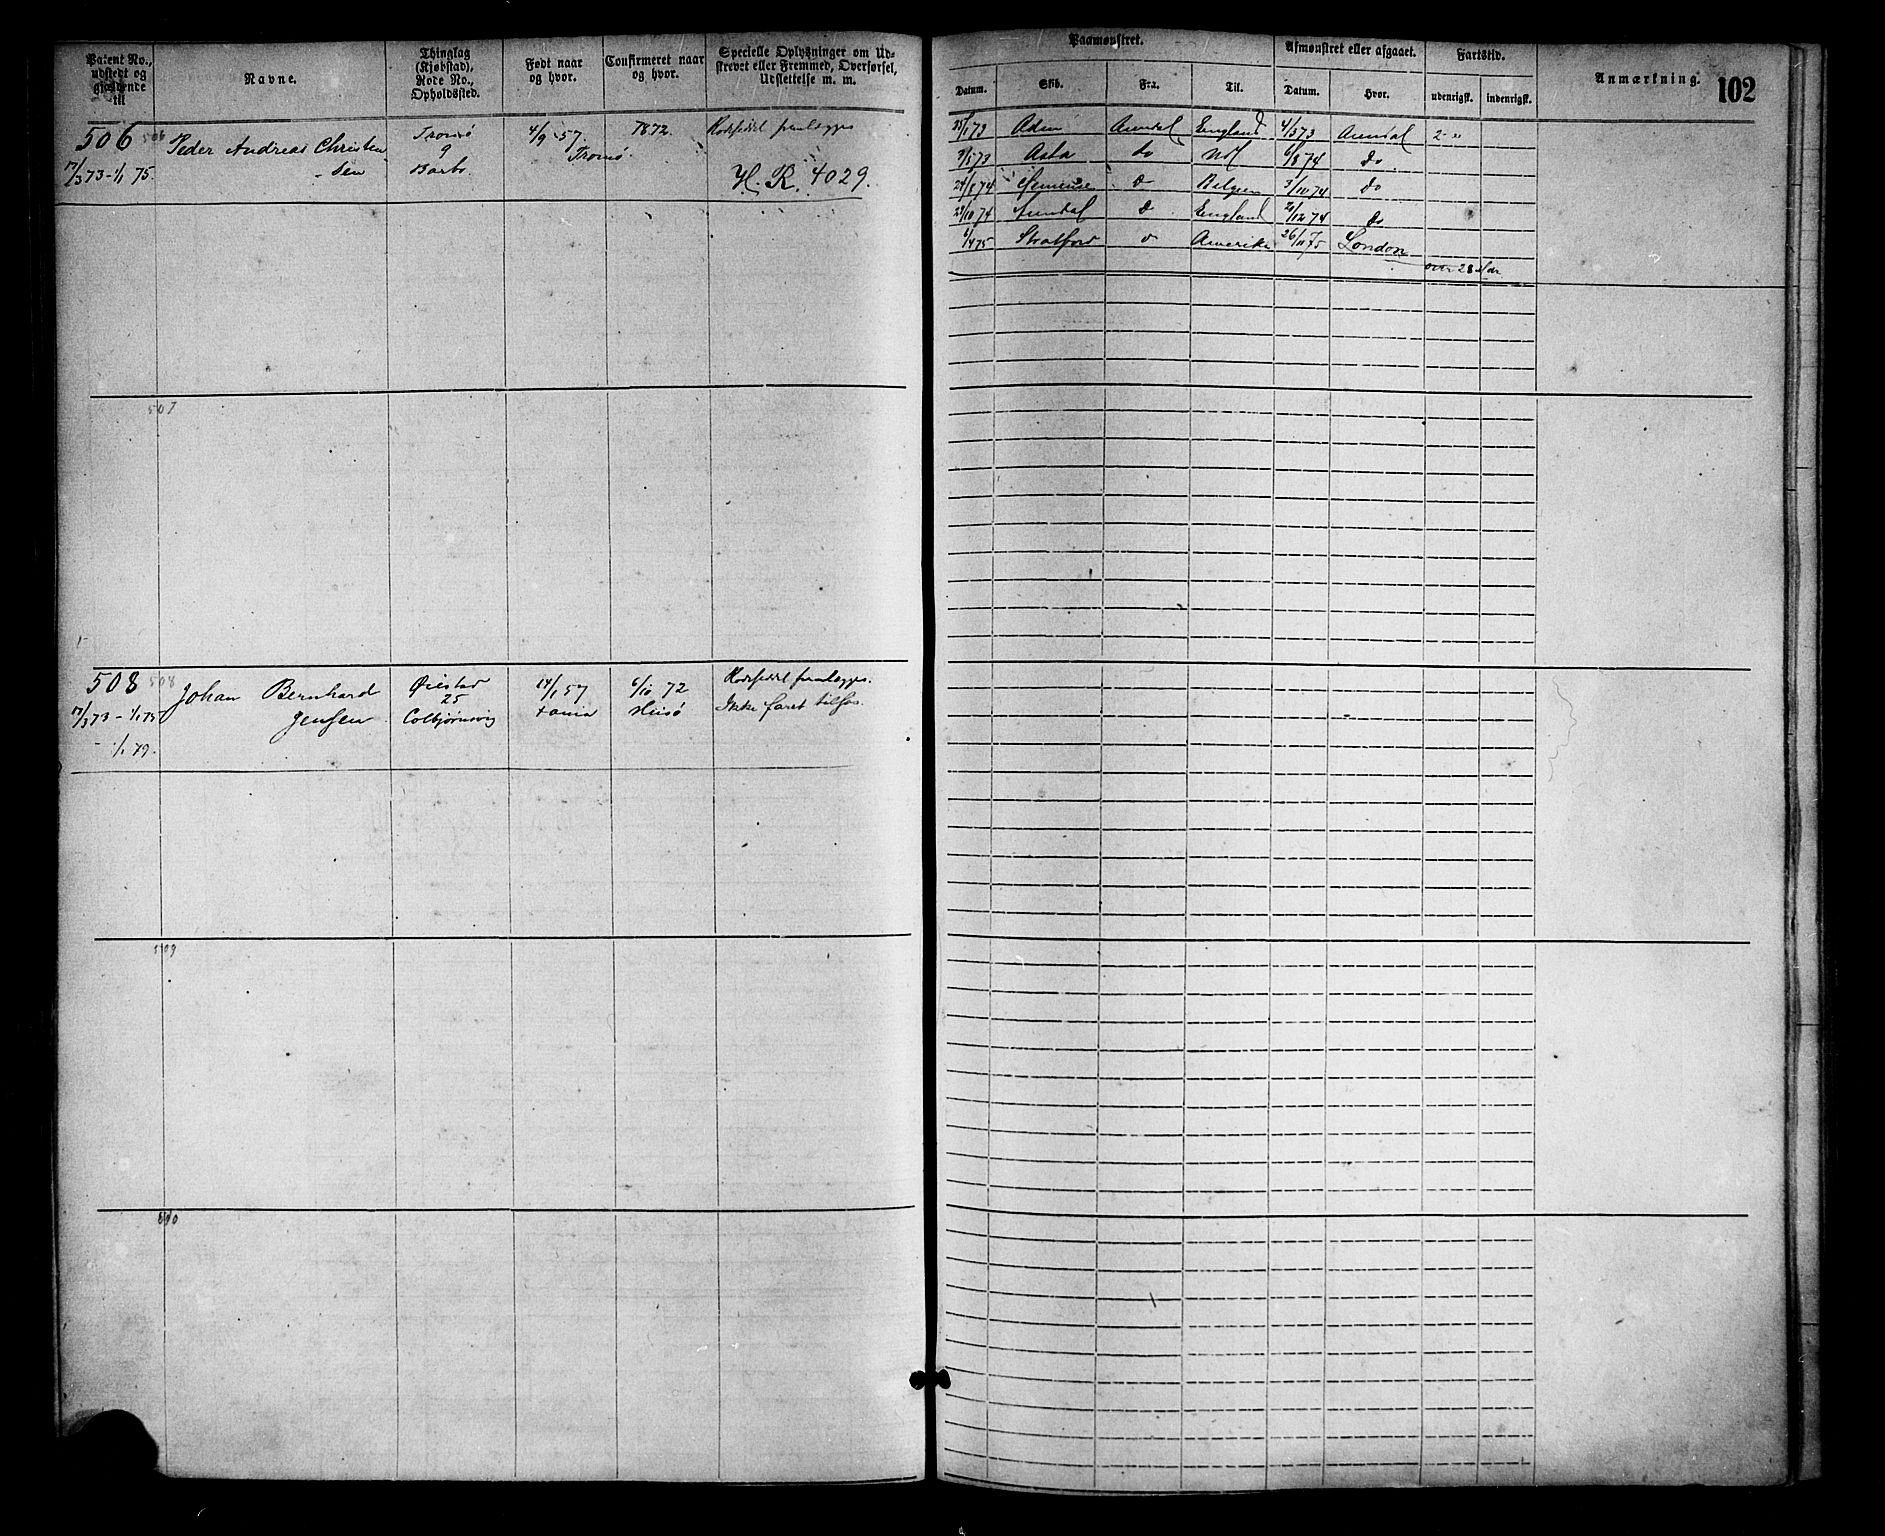 Patent No., udstedt og gjældende til
Navne.
Thinglag (Kjøbstad), Rode No., Opholdssted.
Født naar og hvor.
Confirmeret naar og hvor.
Specielle Oplysninger om Udskrevet eller Fremmed, Overførsel, Udslettelse m. m.
Paamønstret.
Afmønstret eller afgaaet.
Fartstid.
Anmærkning.
102
Datum.
Skib.
Fra.
Til.
Datum.
Hvor.
udenrigsk.
indenrigsk.
506 506 Peder Andreas Christen- Tromø 4/9 57. 1872. Rodeseddel fremlagges
17/3 73 - 1/1 75. sen 9 Tromø
Barbo H. R. 4029.
25/1 73 Adem Arendal England 4/3 73 Arendal 2 "
3/5 73 Asta do 6/8 74 do
24/8 74 Belgien 3/10 74 do
23/10 74 Arendal England 20/12 74 do
6/4 75 Stratford Amerika 26/11 75 London
over 28 Mdr
507
508 508 Johan Bernhard Øiestad 14/1 57 6/10 72 Rodeseddel fremlagges.
17/3 73 - 1/1 75 Jensen 25 Hisø Ikke faret tilsøs.
- 1/1 79. Colbjørnsvig
509
510